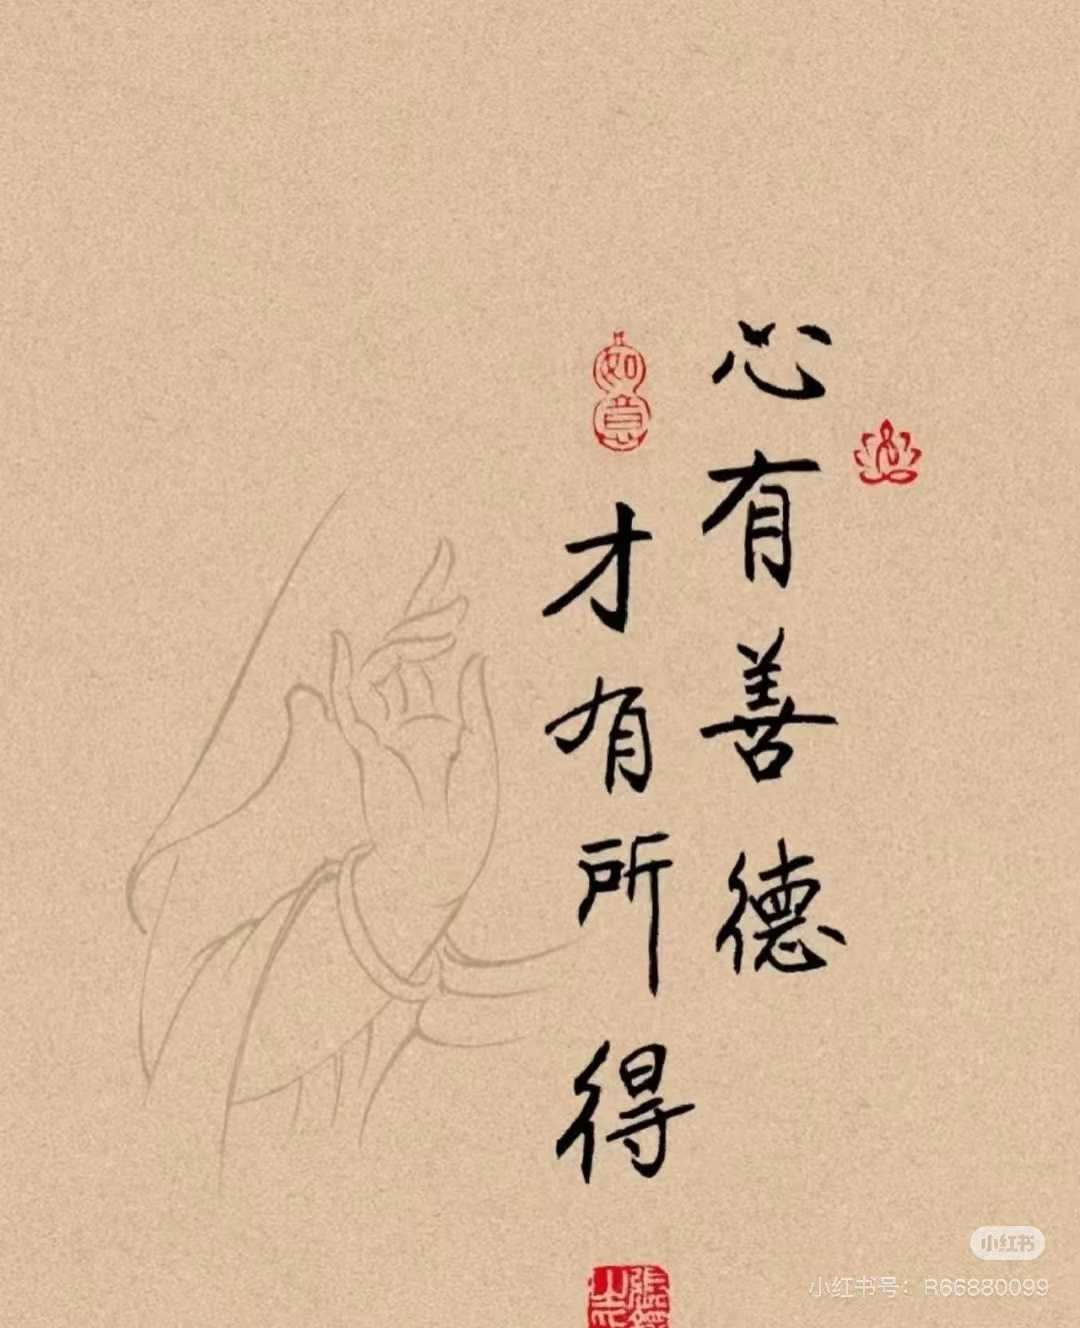 心有善德
如意
才有所得
小红书
小红书号：R66880099